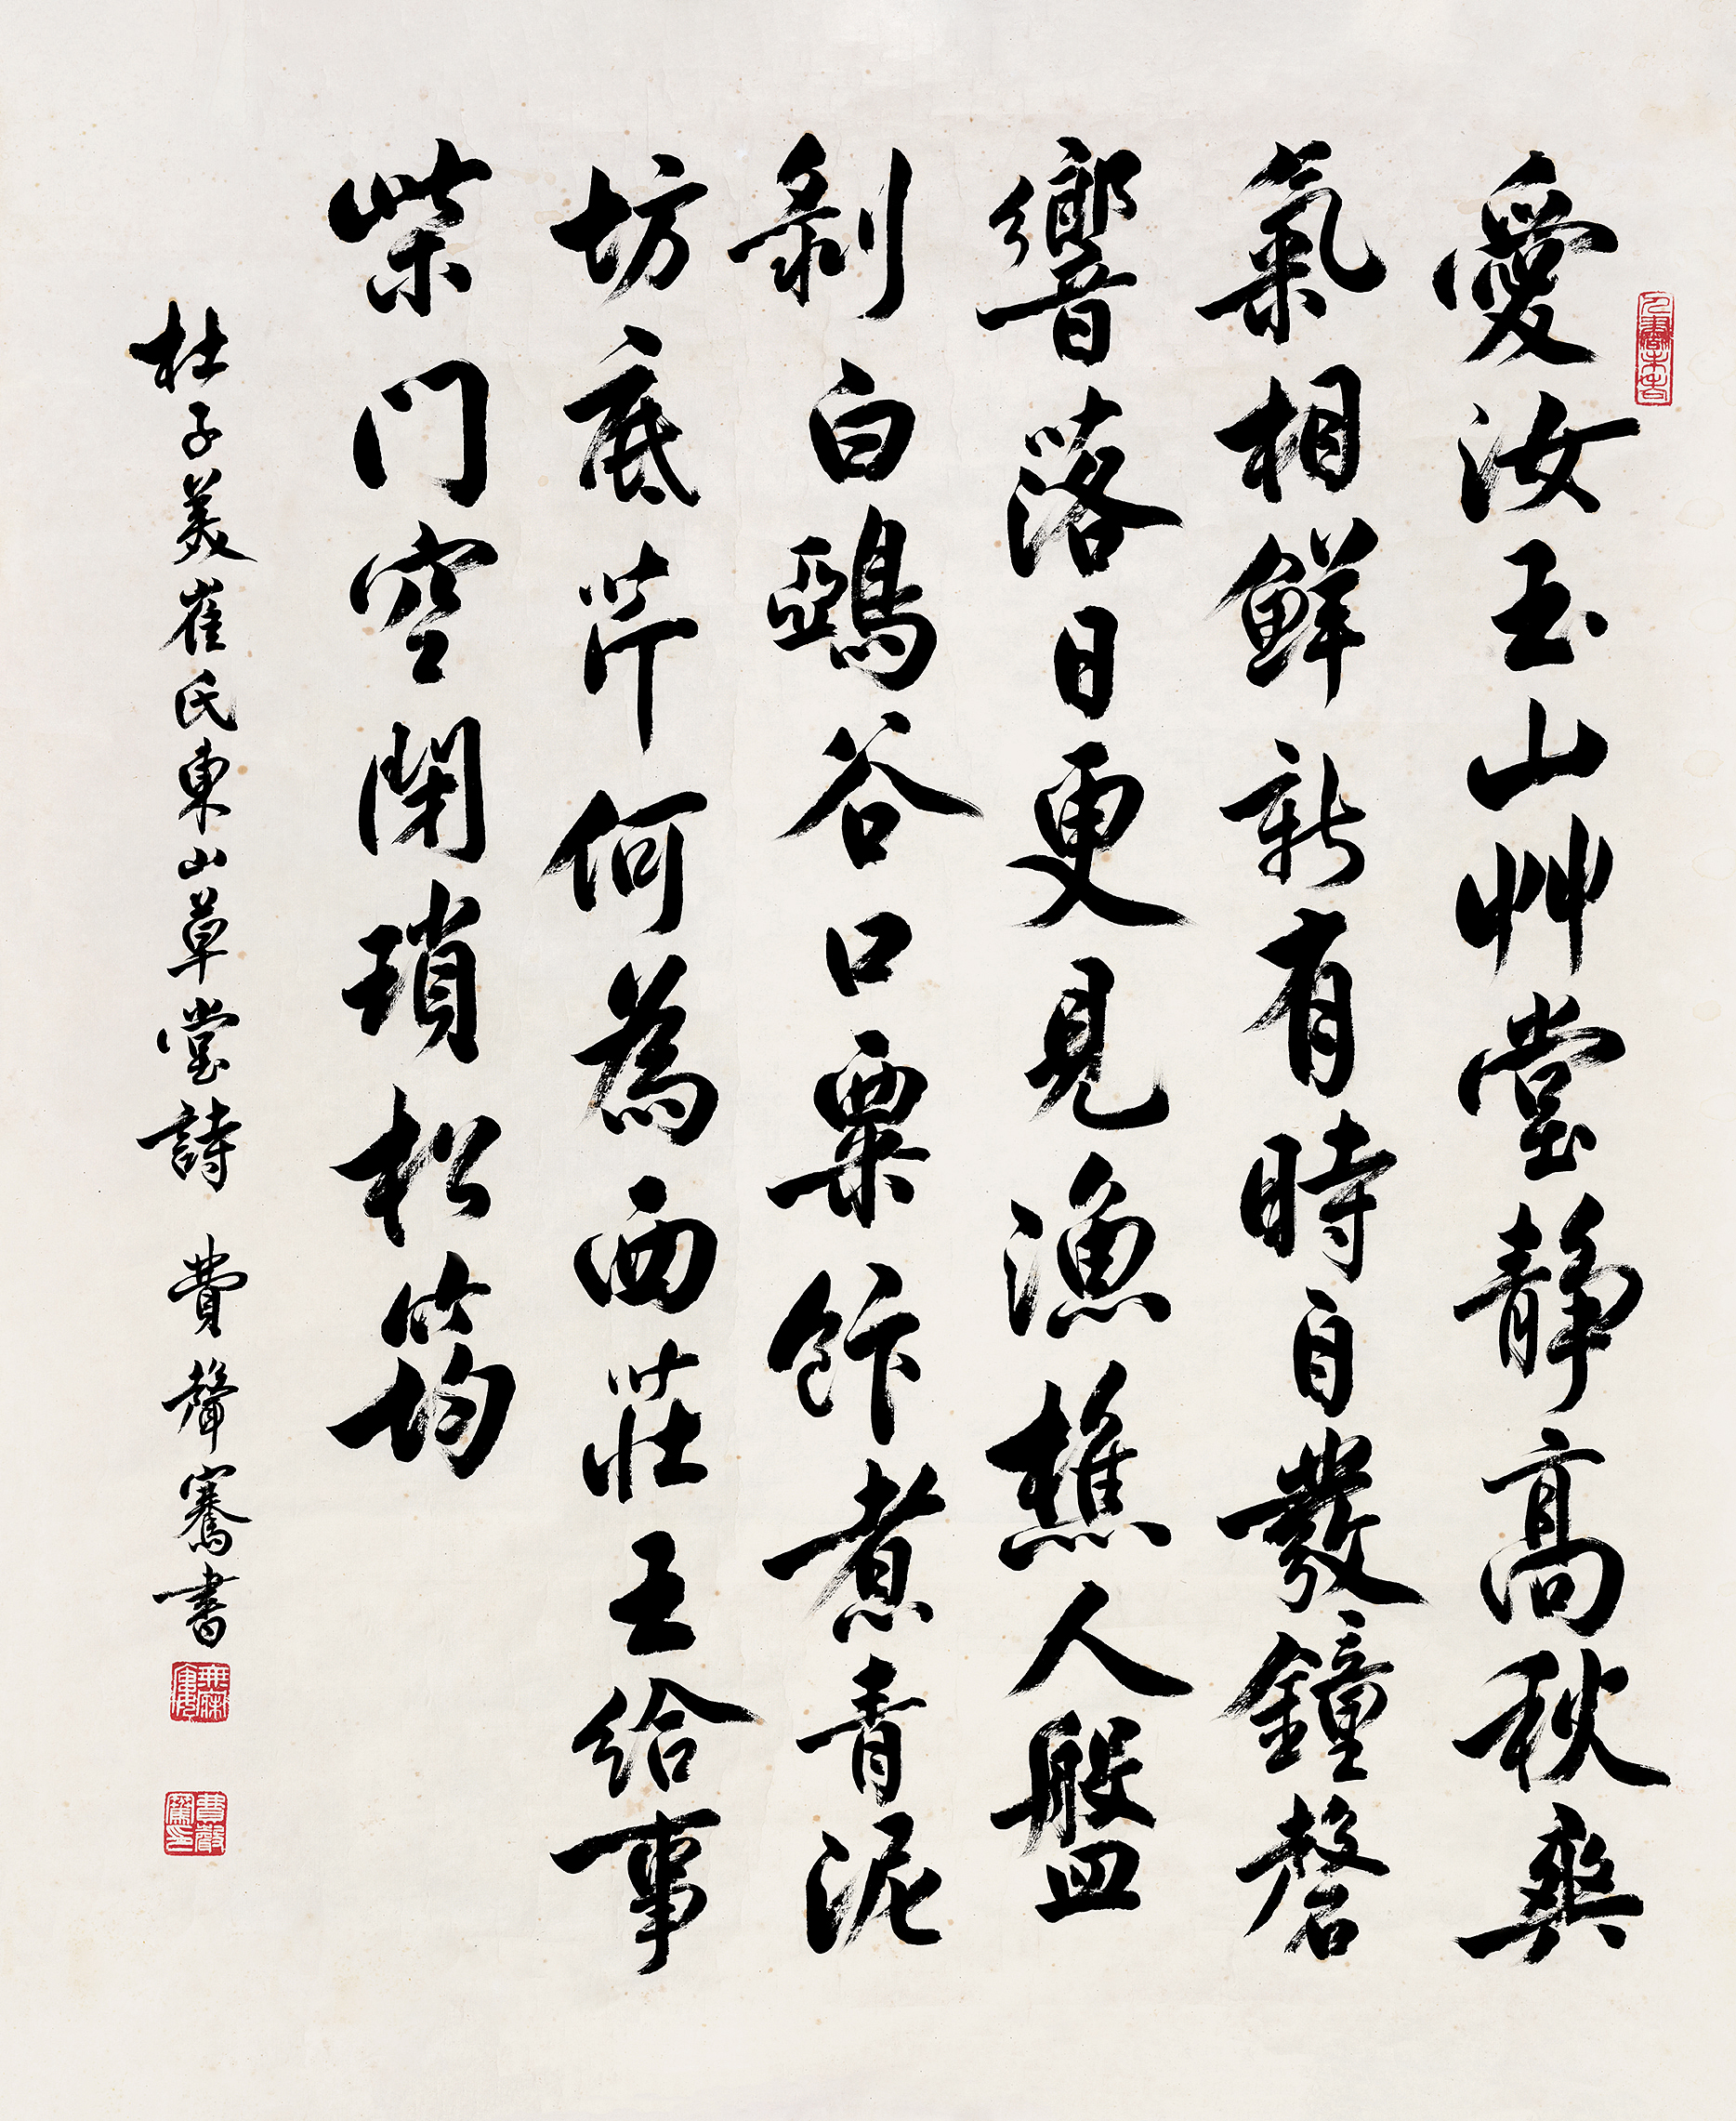 愛汝玉山艸堂靜高秋爽
氣相鮮新有時自發鐘磬
響落日更見漁樵人盤
剝白鵶谷口粟飰煮青泥
坊底芹何為西莊王給事
柴门空閉瑣松筠
杜子美崔氏東山草堂詩 費聲騫書